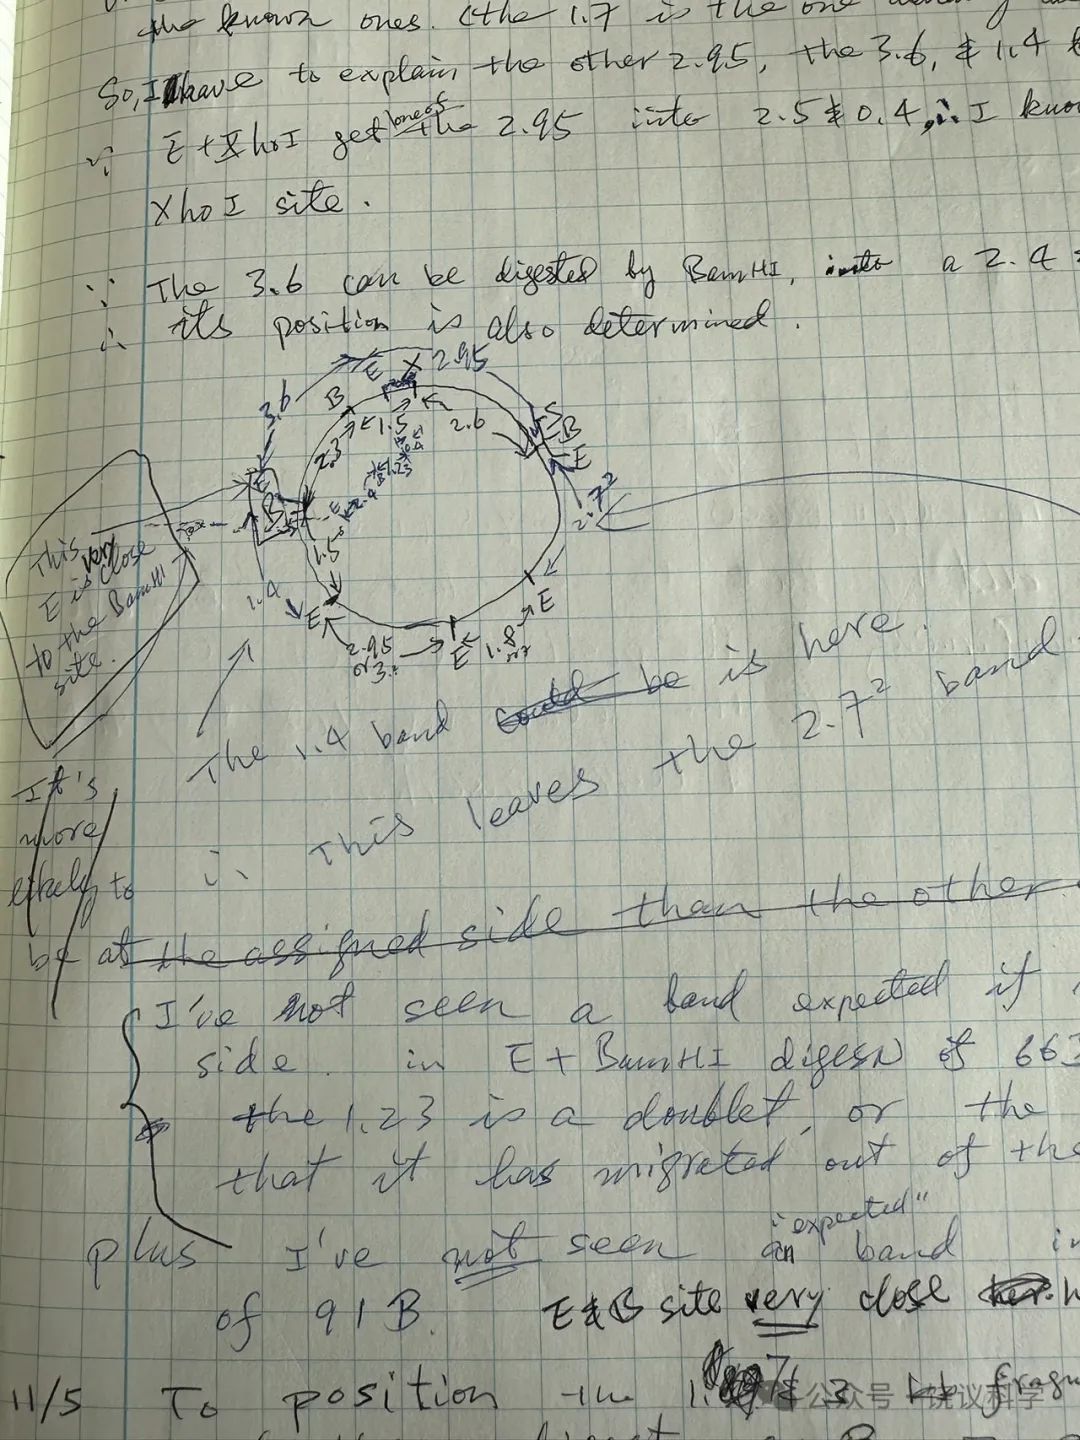 the known ones. (the 1.7 is the one
So, I have to explain the other 2.95, the 3.6, & 1.4
∵ E + XhoI get one of the 2.95 into 2.5 & 0.4, ∴ I know
XhoI site.
∵ The 3.6 can be digested by BamHI, into a 2.4
∴ its position is also determined.
3.6
E
X
2.95
B
1.5
2.6
S
B
E
2.3
1.23
2.4
E
B
E
1.5
2.7²
1.4
E
2.95
or 3.2
E
1.8
or 7
E
This
very
E is close
to the BamHI
site.
The 1.4 band could be is here.
∴ This leaves the 2.7² band
It's
more
likely to
be at the assigned side than the other
I've not seen a band expected if
side. in E + BamHI digest of 663
the 1.23 is a doublet, or the
that it has migrated out of the
plus I've not seen an "expected" band in
of 91B. E & B site very close
11/5 To position the 1.7 & 3 fragm
公众号 · 饶议科学
digest